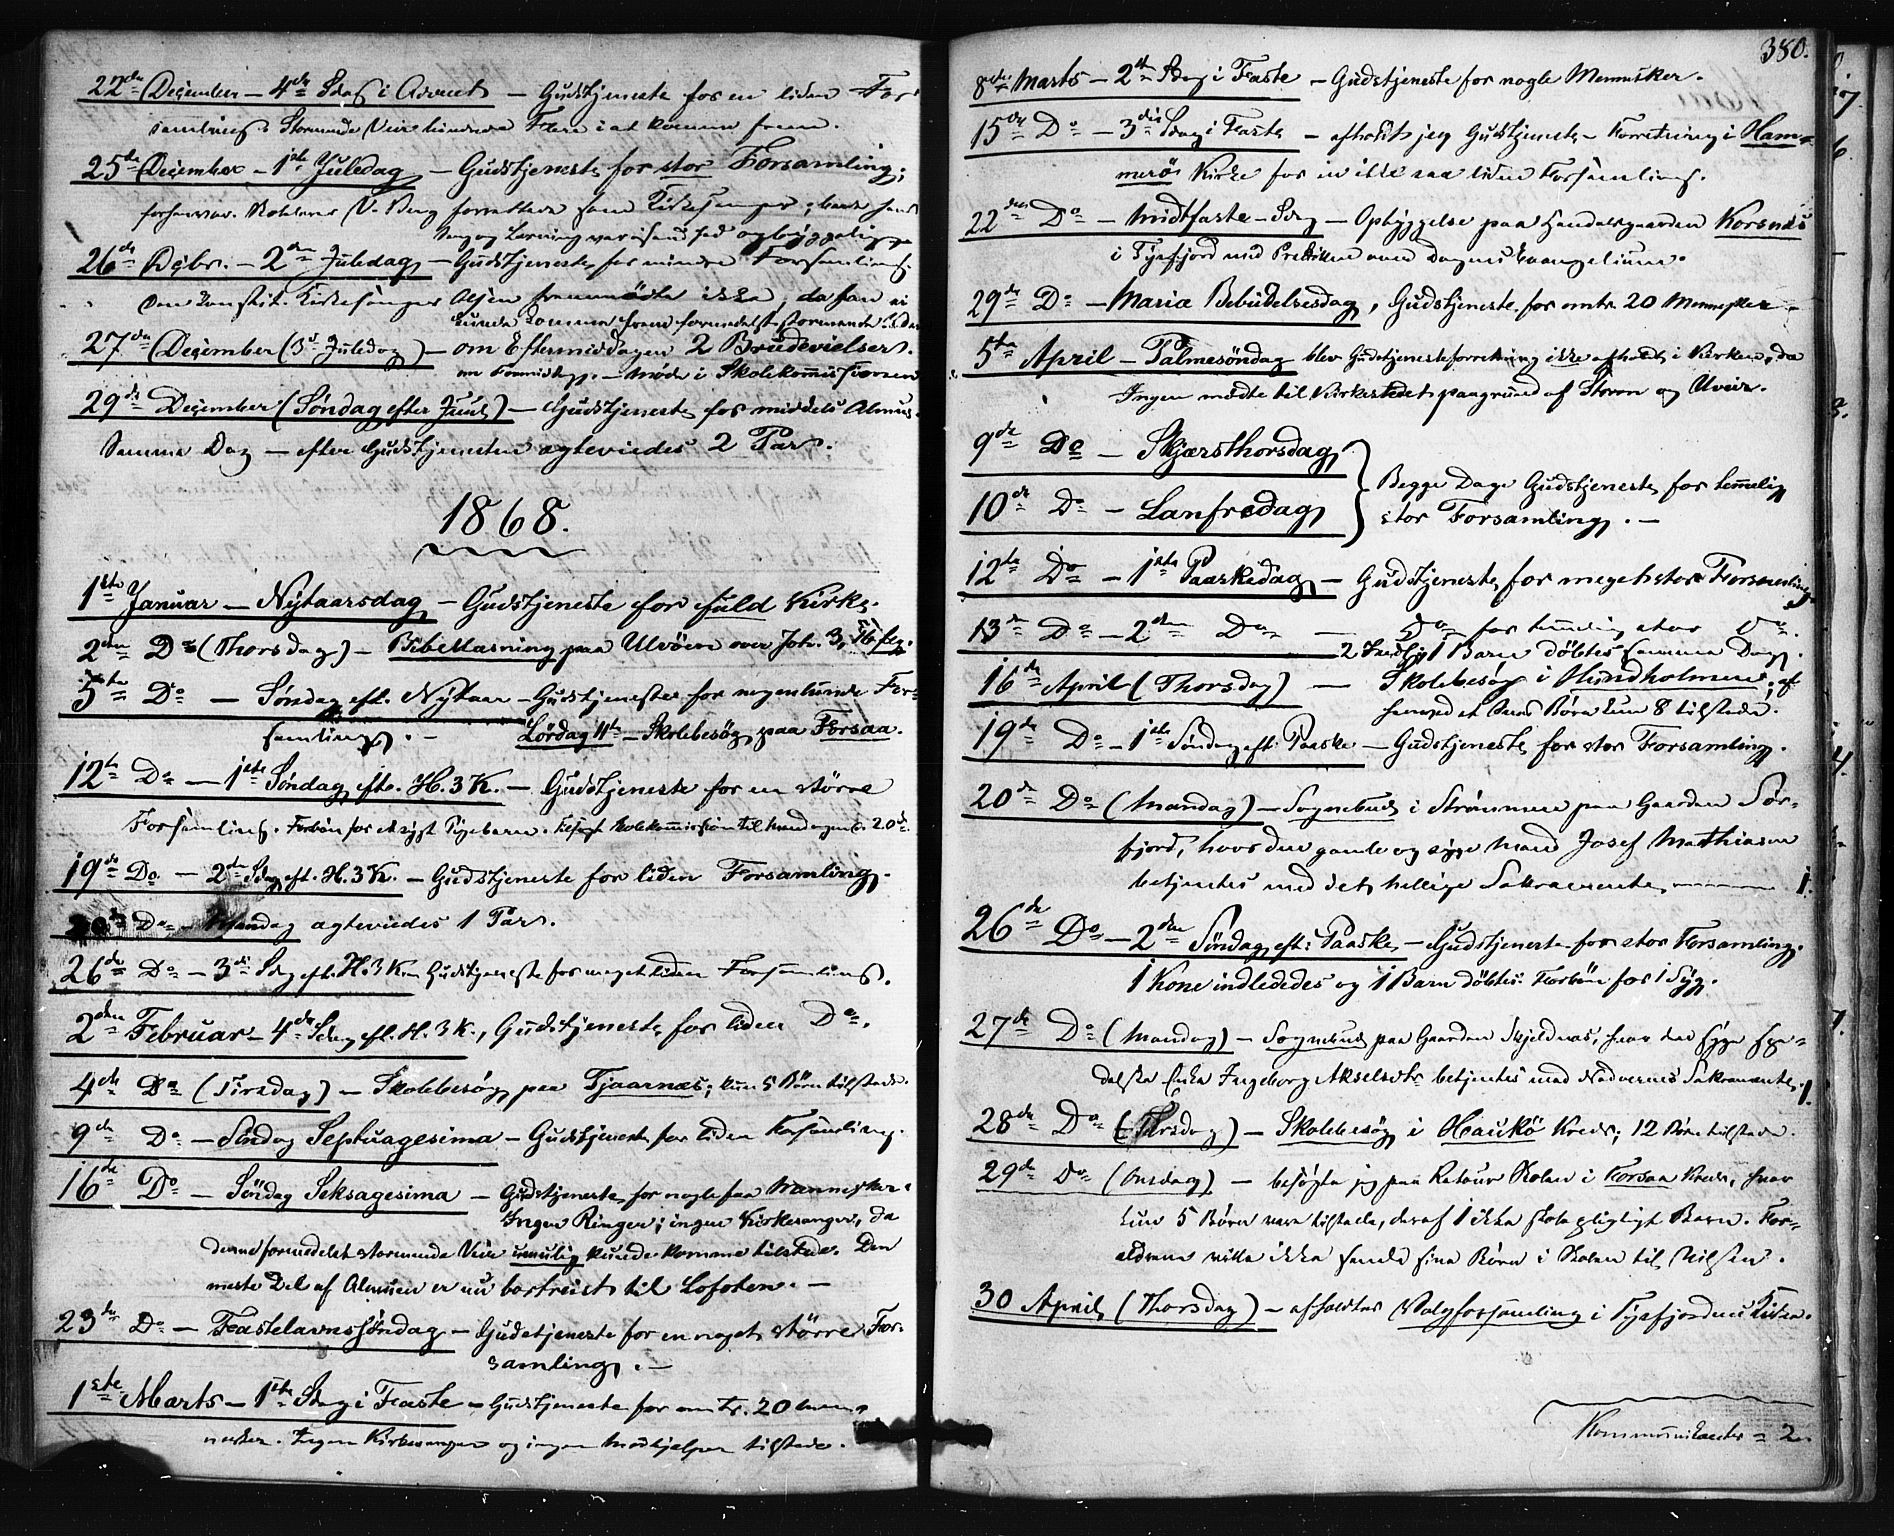 22de December – 4de Sdag i Advent – Gudstjeneste for en liden For-
samling. Stormende Veir hindrede Flere i at komme frem.
25de December – 1ste Juledag – Gudstjeneste for stor Forsamling;
forhenvær. Skolelærer Berg forrettede som Kirkesanger; baade hans
Sang og Læsning var opbyggelige
26de Dcbr. – 2den Juledag – Gudstjeneste for mindre Forsamling.
Den konstit. Kirkesanger Olsen fremmødte ikke, da han ei
kunde komme frem formedelst stormende Veir
27de December (3d Juledag) – om Eftermiddagen 2 Brudevielser.
om Formidd. – Møde i Skolekommissionen
29de December (Søndag efter Juul) – Gudstjeneste for middels Almue.
Samme Dag – efter Gudstjenesten ægteviedes 2 Par.
1868.
1ste Januar – Nytaarsdag – Gudstjeneste for fuld Kirke.
2den Do (Thorsdag) – Bibellæsning paa Ulvöen over Joh. 3, 16 flg.
5te Do – Søndag eft. Nytaar – Gudstjeneste for nogenlunde For-
samling. – Lørdag 11te – Skolebesøg paa Forsaa.
12te Do – 1ste Søndag eft. H. 3 K. – Gudstjeneste for en større
Forsamling. Forbøn for et sygt Pigebarn. Skolekommission til Mandagen d. 20de
19de Do – 2den Sdag eft. H. 3 K. – Gudstjeneste for liden Forsamling.
20de Do – Mandag ægteviedes 1 Par.
26de Do – 3die Sdag eft. H. 3 K. – Gudstjeneste for meget liden Forsamling.
2den Februar – 4de Sdag eft. H. 3 K., Gudstjeneste for liden Do.
4de Do (Tirsdag) – Skolebesøg paa Tjaarnæs; kun 5 Børn tilstede.
9de Do – Søndag Septuagesima – Gudstjeneste for liden Forsamling.
16de Do – Søndag Seksagesima – Gudstjeneste for nogle faa Mennesker.
Ingen Ringer; ingen Kirkesanger, da
denne formedelst stormende Veir umulig kunde komme tilstede. Den
meste Del af Almuen er nu bortreist til Lofoten. –
23de Do – Fastelavnssøndag – Gudstjeneste for en noget større For-
samling. –
1ste Marts – 1ste Sdag i Faste – Gudstjeneste for omtr. 20 Men-
nesker. Ingen Kirkesanger og ingen Medhjelper tilstede.
380.
8de Marts – 2den Sdag i Faste – Gudstjeneste for nogle Mennesker.
15de Do – 3die Sdag i Faste – afholdt jeg Gudstjeneste-Forretning i Ham-
merö Kirke for en ikke saa liden Forsamling.
22de Do – Midtfaste-Sdag – Opbyggelse paa Handelsgaarden Korsnæs
i Tysfjord med Prædiken over Dagens Evangelium.
29de Do – Mariæ Bebudelsesdag, Gudstjeneste for omtr. 20 Mennesker.
5te April – Palmesøndag blev Gudstjenesteforretning ikke afholdt i Kirken, da
Ingen mødte til Kirkestedet paagrund af Storm og Uveir.
9de Do – Skjærsthorsdag
10de Do – Lanfredag
Begge Dage Gudstjeneste for temmelig
stor Forsamling. –
12te Do – 1ste Paaskedag – Gudstjeneste for meget stor Forsamling.
13de Do – 2den Do – Do for temmelig stor Do.
1 Barn döbtes samme Dag.
16de April (Thorsdag) – Skolebesøg i Hundholmen; af
Kredsens Børn kun 8 tilstede.
19de Do – 1ste Søndag eft. Paaske – Gudstjeneste for stor Forsamling.
20de Do (Mandag) – Sognebud i Strømmen paa Gaarden Sør-
fjord, hvor den gamle og syge Mand Josef Mathiasen
betjentes med det hellige Sakramente 1.
26de Do – 2den Søndag eft: Paaske – Gudstjeneste for stor Forsamling.
1 Kone indlededes og 1 Barn döbtes. Forbön for 1 Syg.
27de Do (Mandag) – Sognebud paa Gaarden Skjeldnæs, hvor den syge
Enke Ingeborg Akselsdtr betjentes med Nadverens Sakramente 1.
28de Do (Tirsdag) – Skolebesøg i Haukö Kreds; 12 Børn tilstede.
29de Do (Onsdag) – besøgte jeg paa Retour Skolen i Forsaa Kreds, hvor
kun 5 Børn vare tilstede, deraf 1 ikke skolepligtigt Barn. For-
ældrene ville ikke sende sine Børn i Skolen til Nilsen.
30 April (Thorsdag) – afholdtes Valgforsamling i Tysfjordens Kirke.
Kommunikanter = 2.